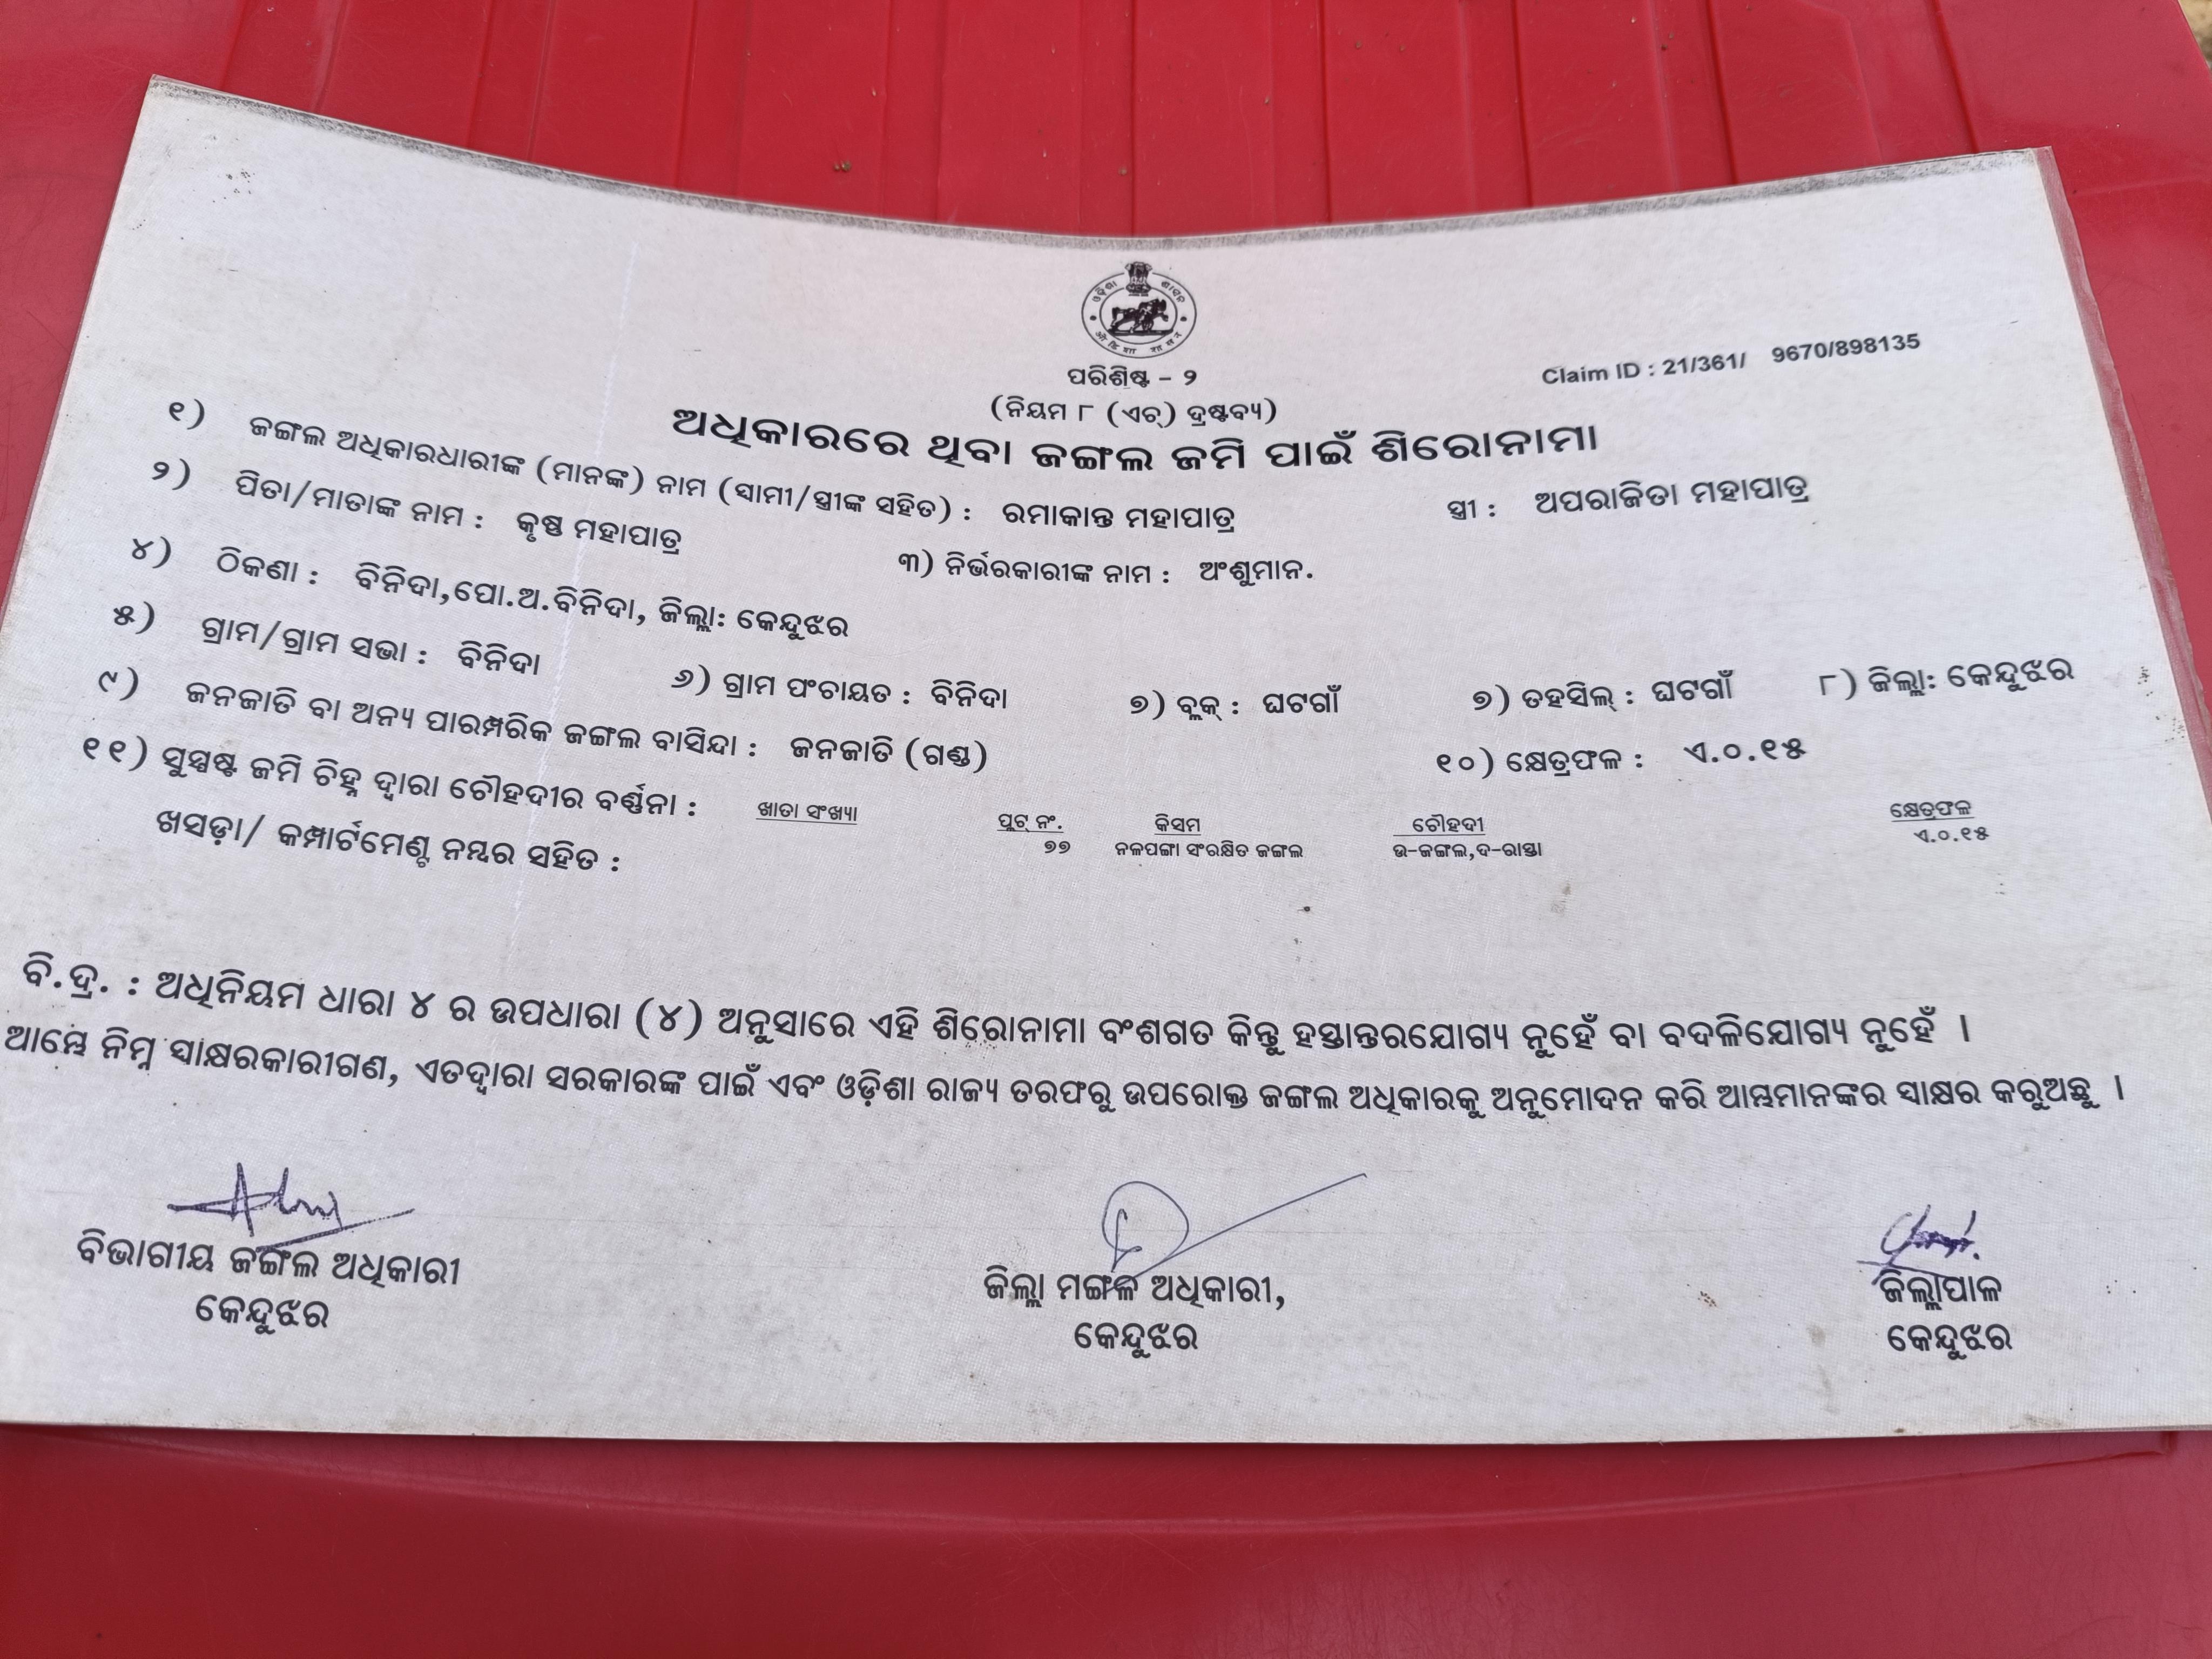 ଓଡ଼ିଶା ଶାସନ
ओडिशा शासन
ପରିଶିଷ୍ଟ - ୨
Claim ID : 21/361/ 9670/898135
(ନିୟମ ୮ (ଏଚ୍) ଦ୍ରଷ୍ଟବ୍ୟ)
ଅଧିକାରରେ ଥିବା ଜଙ୍ଗଲ ଜମି ପାଇଁ ଶିରୋନାମା
୧) ଜଙ୍ଗଲ ଅଧିକାରଧାରୀଙ୍କ (ମାନଙ୍କ) ନାମ (ସ୍ୱାମୀ/ସ୍ତ୍ରୀଙ୍କ ସହିତ) : ରମାକାନ୍ତ ମହାପାତ୍ର ସ୍ତ୍ରୀ : ଅପରାଜିତା ମହାପାତ୍ର
୨) ପିତା/ମାତାଙ୍କ ନାମ : କୃଷ୍ଣ ମହାପାତ୍ର ୩) ନିର୍ଭରକାରୀଙ୍କ ନାମ : ଅଂଶୁମାନ.
୪) ଠିକଣା : ବିନିଦା,ପୋ.ଅ.ବିନିଦା, ଜିଲ୍ଲା: କେନ୍ଦୁଝର
୫) ଗ୍ରାମ/ଗ୍ରାମ ସଭା : ବିନିଦା ୬) ଗ୍ରାମ ପଂଚାୟତ : ବିନିଦା ୭) ବ୍ଲକ୍ : ଘଟଗାଁ ୭) ତହସିଲ୍ : ଘଟଗାଁ ୮) ଜିଲ୍ଲା: କେନ୍ଦୁଝର
୯) ଜନଜାତି ବା ଅନ୍ୟ ପାରମ୍ପରିକ ଜଙ୍ଗଲ ବାସିନ୍ଦା : ଜନଜାତି (ଗଣ୍ଡ) ୧୦) କ୍ଷେତ୍ରଫଳ : ଏ.୦.୧୫
୧୧) ସୁସ୍ପଷ୍ଟ ଜମି ଚିହ୍ନ ଦ୍ୱାରା ଚୌହଦୀର ବର୍ଣ୍ଣନା : ଖାତା ସଂଖ୍ୟା ପ୍ଲଟ୍ ନଂ. କିସମ ଚୌହଦୀ କ୍ଷେତ୍ରଫଳ
ଖସଡ଼ା/ କମ୍ପାର୍ଟମେଣ୍ଟ ନମ୍ବର ସହିତ : ୭୭ ନଳପଙ୍ଗା ସଂରକ୍ଷିତ ଜଙ୍ଗଲ ଉ-ଜଙ୍ଗଲ,ଦ-ରାସ୍ତା ଏ.୦.୧୫
ବି.ଦ୍ର. : ଅଧିନିୟମ ଧାରା ୪ ର ଉପଧାରା (୪) ଅନୁସାରେ ଏହି ଶିରୋନାମା ବଂଶଗତ କିନ୍ତୁ ହସ୍ତାନ୍ତରଯୋଗ୍ୟ ନୁହେଁ ବା ବଦଳିଯୋଗ୍ୟ ନୁହେଁ ।
ଆମ୍ଭେ ନିମ୍ନ ସ୍ୱାକ୍ଷରକାରୀଗଣ, ଏତଦ୍ୱାରା ସରକାରଙ୍କ ପାଇଁ ଏବଂ ଓଡ଼ିଶା ରାଜ୍ୟ ତରଫରୁ ଉପରୋକ୍ତ ଜଙ୍ଗଲ ଅଧିକାରକୁ ଅନୁମୋଦନ କରି ଆମ୍ଭମାନଙ୍କର ସ୍ୱାକ୍ଷର କରୁଅଛୁ ।
ବିଭାଗୀୟ ଜଙ୍ଗଲ ଅଧିକାରୀ
କେନ୍ଦୁଝର
ଜିଲ୍ଲା ମଙ୍ଗଳ ଅଧିକାରୀ,
କେନ୍ଦୁଝର
ଜିଲ୍ଲାପାଳ
କେନ୍ଦୁଝର